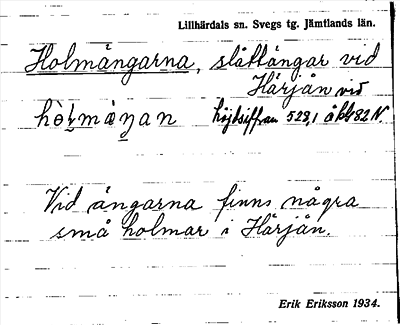 Lillhärdals sn. Svegs tg. Jämtlands län.
Holmängarna, slåttängar vid
Härjån vid
höjdsiffran 528,1 å kbl 82 N.
Vid ängarna finns några
små holmar i Härjån.
Erik Eriksson 1934.